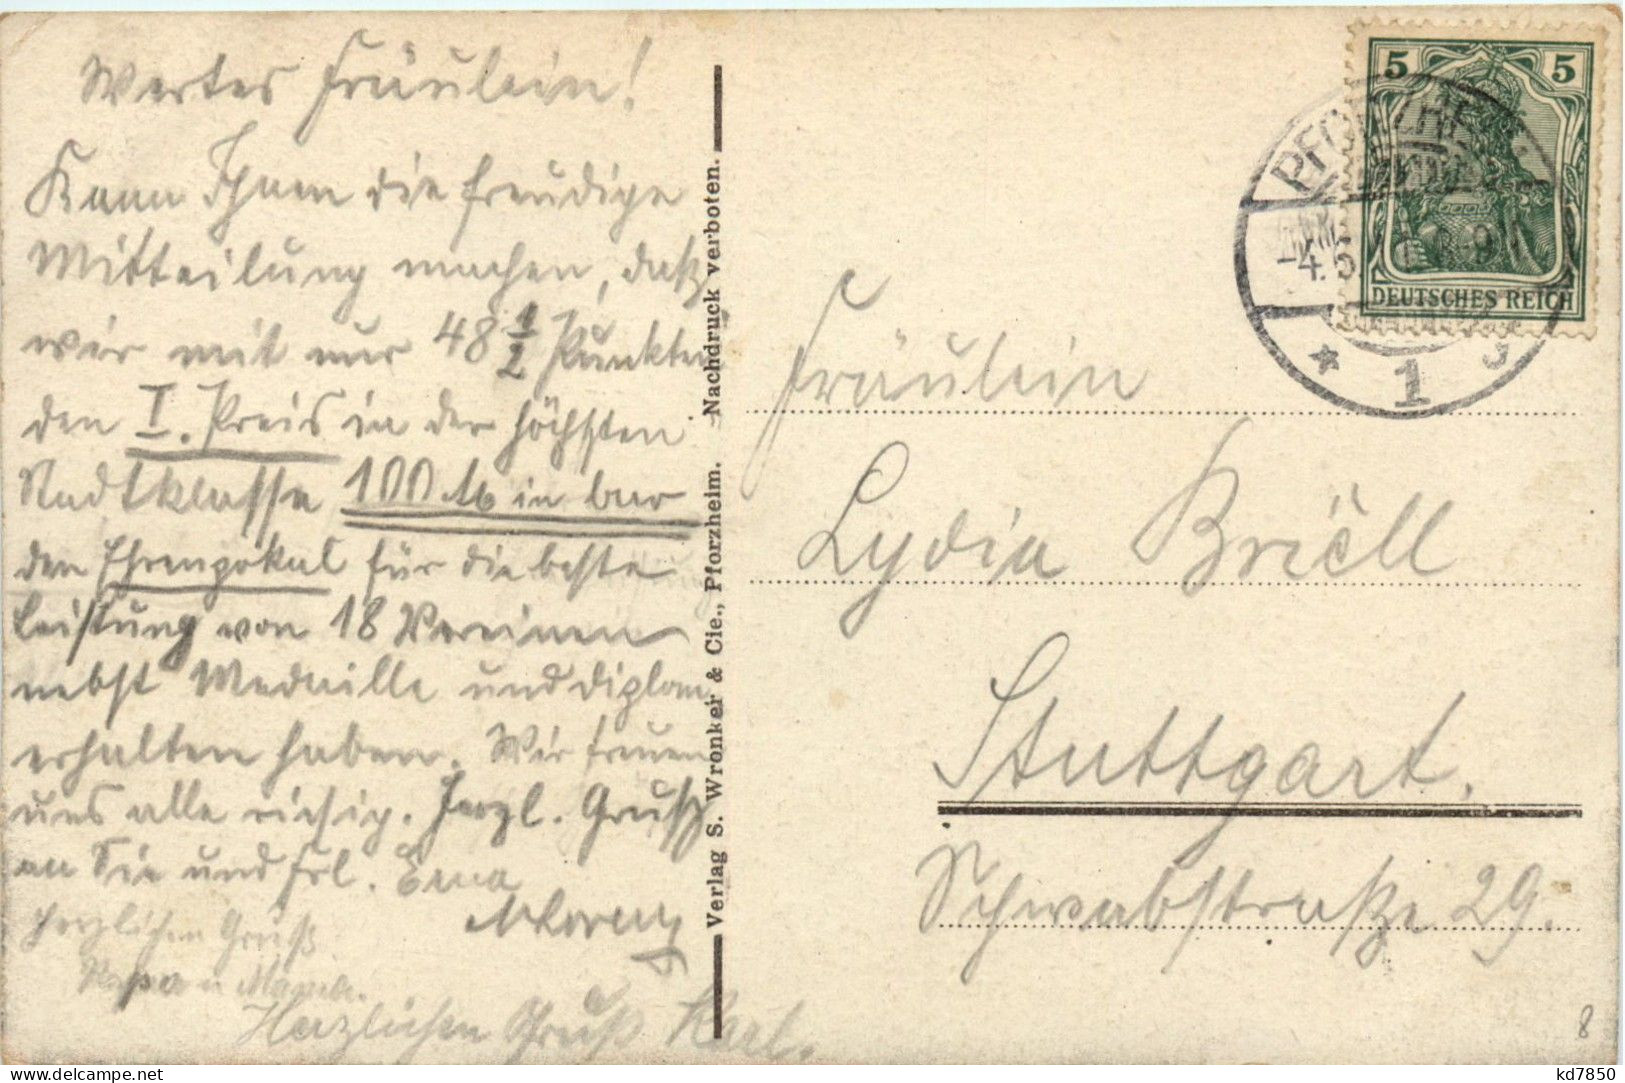 Wertes Fräulein!
Kann Ihnen die freudige
Mitteilung machen, daß
wir mit nur 48 1/2 Punkten
den I. Preis in der höchsten
Stadtklasse 100 M in bar
den Ehrenpokal für die beste
Leistung von 18 Vereinen
nebst Medaille und Diplom
erhalten haben. Wir freuen
uns alle riesig. Herzl. Gruß
an Sie und Frl. Erna
Herzlichen Gruß
Papa u Mama.
Herzlichen Gruß Karl.
Verlag S. Wronker & Cie., Pforzheim. Nachdruck verboten.
5 5
DEUTSCHES REICH
PFORZHEIM
* 1
Fräulein
Lydia Briell
Stuttgart.
Schwabstraße 29.
8
kd7850